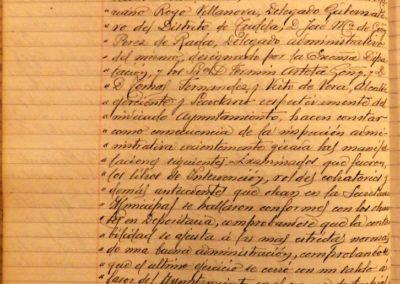 " riano Royo Villanova, Delegado Gubernati
" vo del Distrito de Tudela, D. José Mª de
" Perez de Rada, Delegado administrativo
" del mismo, designado por la Excma Dipu
" tación, y los Sres D. Fermin Arteta y
" D. Tomás Fernandez y Vito de Vera, Alcalde
" ejerciente y Secretario respectivamente del
" Ayuntamiento, hacen constar
" como consecuencia de la inspección admi
" nistrativa recientemente girada las manifes
" taciones siguientes = Examinados que fueron
" los libros de Intervención, roldes cobratorios y
" demás antecedentes que obran en la Secretaria
" Municipal se hallaron conformes con los
" en Depositaria, comprobandose que la conta
" bilidad se ajusta á las mas estrictas normas
" de una buena administración, comprobandose
" que el último ejercicio se cerró con un saldo á
" favor del Ayuntamiento